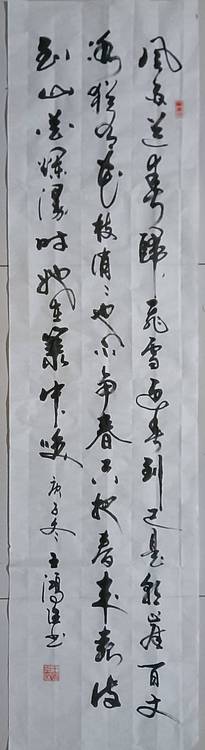 風雨送春歸飛雪迎春到已是懸崖百丈
冰猶有花枝俏〻也不争春只把春来報待
到山花爛漫時她在叢中咲 庚子冬 王鴻书